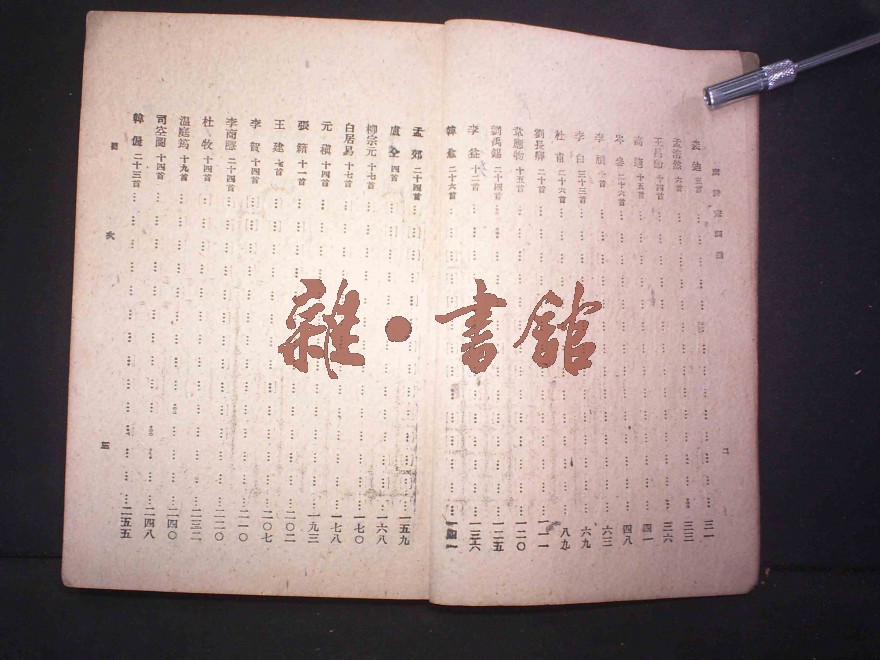 裴迪 三首 三一
孟浩然 六首 三三
王昌齡 十四首 三六
高適 十五首 四一
岑參 二十六首 四八
李頎 首 六三
李白 三十三首 六九
杜甫 二十六首 八九
劉長卿 二十首 一一一
韋應物 十五首 一二〇
劉禹錫 二十四首 一二五
李益 十二首 一三六
韓愈 二十六首 一四一
孟郊 二十四首 一五九
盧仝 四首 一六八
柳宗元 十七首 一七〇
白居易 十七首 一七八
元稹 十四首 一九三
張籍 十一首 二〇二
王建 七首 二〇七
李賀 十四首 二一〇
李商隱 二十四首 二二〇
杜牧 十四首 二三二
溫庭筠 十九首 二四〇
司空圖 十四首 二四八
韓偓 二十三首 二五五
次 三
雜·書館